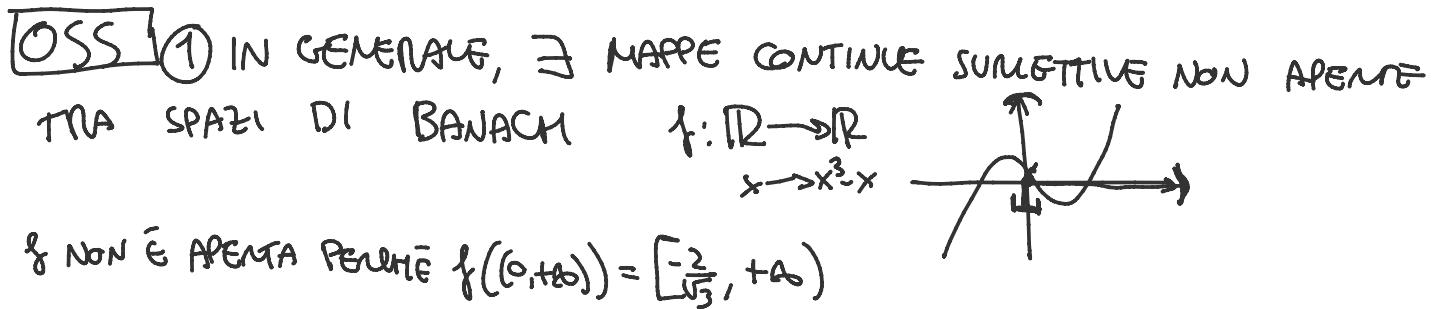 OSS ① IN GENERALE, ∃ MAPPE CONTINUE SURIETTIVE NON APERTE
TRA SPAZI DI BANACH f: ℝ→ℝ
x→x³-x
f NON È APERTA PERCHÉ f((0,+∞)) = [-2/√3, +∞)